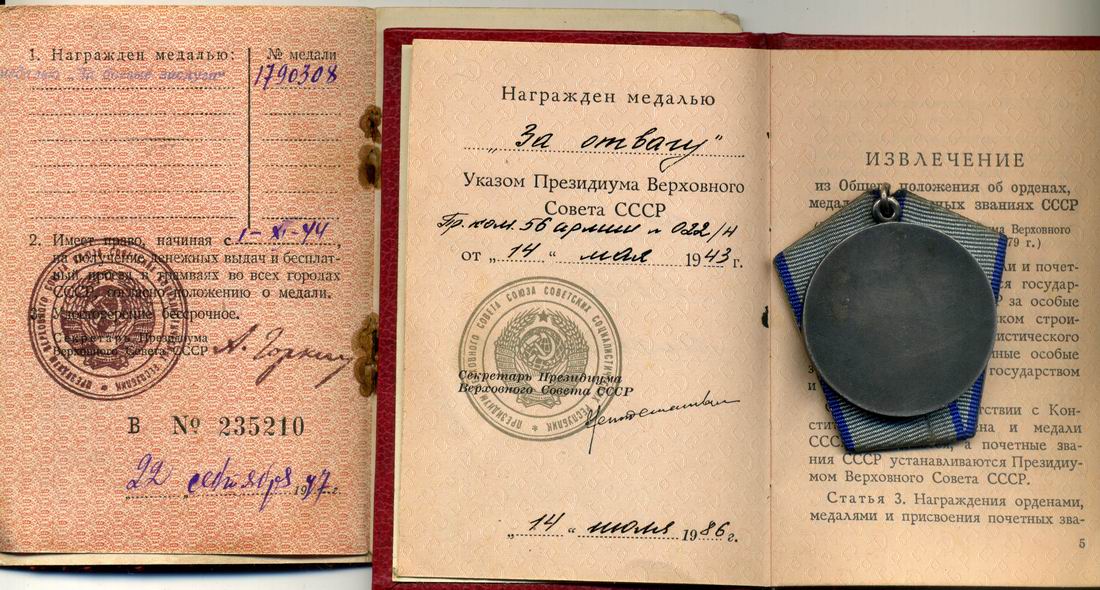 1. Награжден медалью:
№ медали
медалью „За боевые заслуги"
1790308
2. Имеет право, начиная с 1-XI-44,
на получение денежных выдач и бесплат-
ный проезд в трамваях во всех городах
СССР, согласно положению о медали.
Удостоверение бессрочное.
Секретарь Президиума
Верховного Совета СССР
А. Горкин
В № 235210
22 сентября 1947 г.
Награжден медалью
„За отвагу"
Указом Президиума Верховного
Совета СССР
Пр. ком. 56 армии № 022/н
от „14" мая 1943 г.
ПРЕЗИДИУМ ВЕРХОВНОГО СОВЕТА СОЮЗА СОВЕТСКИХ СОЦИАЛИСТИЧ РЕСПУБЛИК
Секретарь Президиума
Верховного Совета СССР
„14" июля 1986 г.
ИЗВЛЕЧЕНИЕ
из Общего положения об орденах,
медал ных званиях СССР
ма Верховного
79 г.)
ли и почет-
ся государ-
Р за особые
ком строи-
листического
иные особые
государством
и
тствии с Кон-
стит на и медали
СССР а почетные зва-
ния СССР устанавливаются Президиу-
мом Верховного Совета СССР.
Статья 3. Награждения орденами,
медалями и присвоения почетных зва-
5